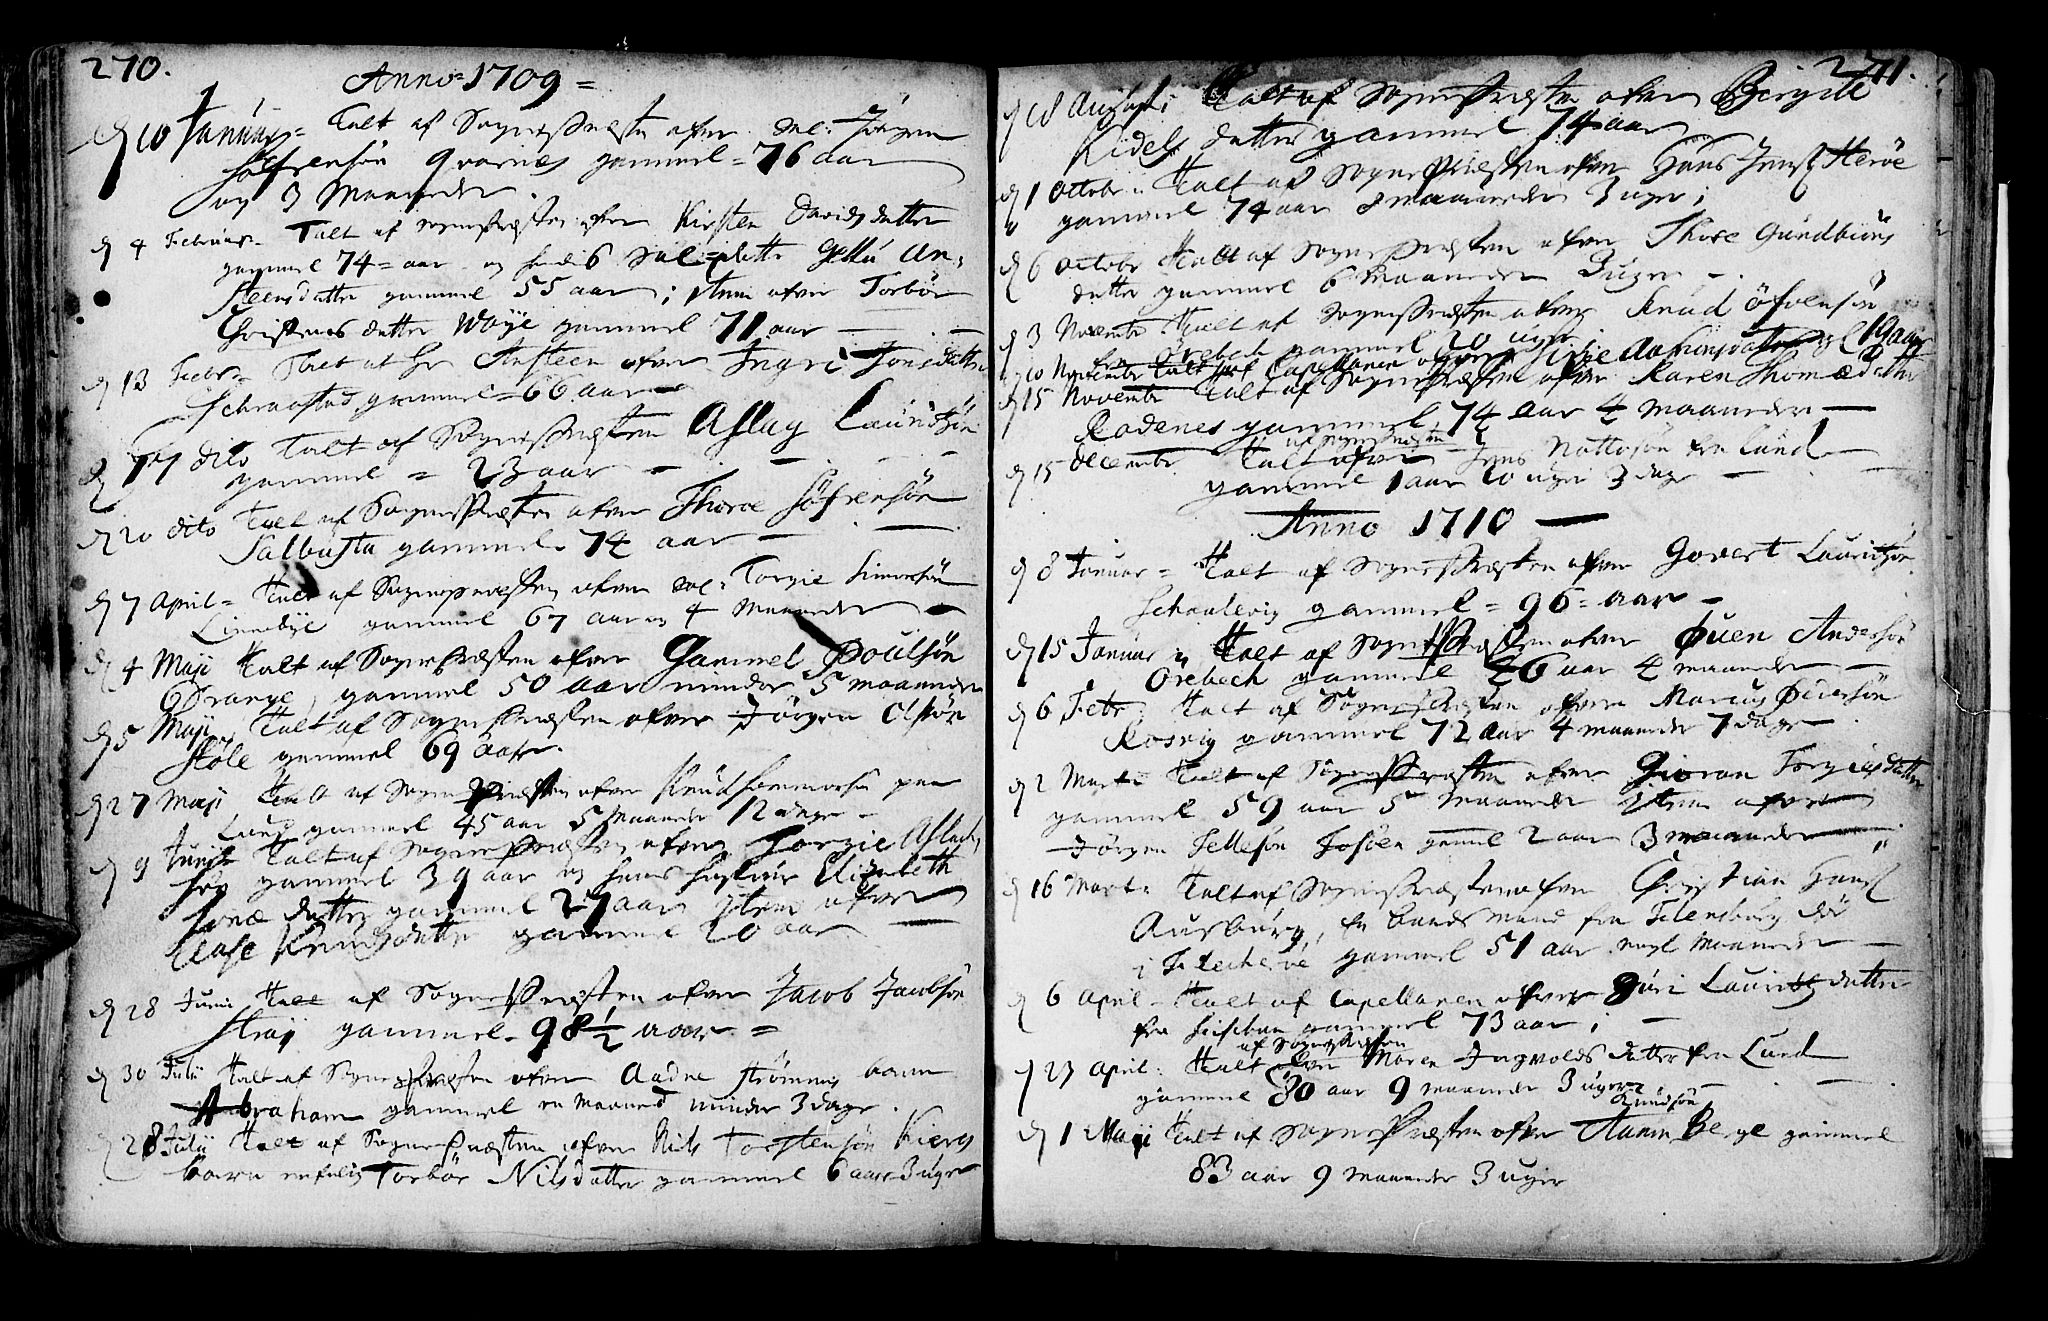 270.
Anno 1709 =
10 Januar = Talt af Sognepresten ofver Sal: Jörgen
Söfrensön gammel = 76 aar
og 3 Maaneder.
4 Februar. Talt af Sognepresten ofver Kirsten Davidsdatter
gammel 74 = aar og hendis datter An,
Steensdatter gammel 55 aar; item ofver Torbör
Christensdatter Woye gammel 71 aar —
13 Febr. Ansteen ofver Ingri Jonsdatter
gammel = 66 aar —
17 dito Talt af Sognepresten Aslag Lauridsön
gammel = 23 aar —
20 dito Talt af Sognepresten ofver Thoroe Söfrensön
Salbusta gammel 74 aar —
7 April = Talt af Sognepresten ofver Sal: Torgie Simonsön
Linnebye gammel 67 aar og 4 Maaneder —
4 Maji Talt af Sognepresten ofver Gammel Poulsön
Drange, gammel 50 aar minder 5 maaneder
5 Maji Talt af Sognepresten ofver Jörgen Olsön
Stöle gammel 69 aar.
27 Maji Talt af Sognepresten ofver Knud paa
Lund gammel 45 aar 5 Maaneder 12 dage —
9 Junij Talt af Sognepresten ofver Torgie Aslach,
sön gammel 39 aar og hans hustrue Elizabeth
datter gammel 27 aar item ofver
Aase Knudsdatter gammel 20 aar.
28 Juni Talt af Sognepresten ofver Jacob Jacobsön
Straÿ gammel 98½ aar =
30 Julii Talt af Sognepresten ofver Aadne Strömmes barn
Abraham gammel en maaned minder 3 dage.
28 Julii Talt af Sognepresten ofver Nils Torstensön Kiergs
barn nafnlig Torbör Nilsdatter gammel 6 aar 3 uger
271.
18 August: Talt af Sognepresten ofver Birgite
Kidelsdatter gammel 74 aar
1 Octobr: Talt af Sognepresten ofver Hans Jensön Heröe
gammel 74 aar 8 maaneder 3 uger;
6 Octobr Talt af Sognepresten ofver Thore Gundbiörns
datter gammel 6 Maaneder 3 uger —.
3 Novembr Talt af Sognepresten ofver Knud Öfvensön
Örebech gammel 20 uger
10 Novembr Talt af Capellanen ofver 19 aar
15 Novembr Talt af Sognepresten ofver Karen Thomædatter
Rodenes gammel 74 aar 4 maaneder —
af Sognepresten
15 Decembr Talt ofver Jens Nottesön fra Lund —
gammel 1 aar 10 uger 3 dage —
Anno 1710 —
8 Januar = Talt af Sognepresten ofver Govert Lauridsön
Schaalevig gammel = 96 = aar —
15 Januar Talt af Sognepresten ofver Öuen Andersön
Örebech gammel 46 aar 4 maaneder —
6 Febr: Talt af Sognepresten ofver Marcus Pedersön
Rosvig gammel 72 aar 4 maaneder 7 dage —.
2 Marti Talt af Sognepresten ofver Gioran Torgiesdatter
gammel 59 aar 5 Maaneder item ofver
Jörgen Tellesön Fosöen gamel 2 aar 3 maaneder —
16 Marti Talt af Sognepresten ofver Christian Hansön
Ausburg, en baadsmand fra Flensburg dör
i Fleckeröe gammel 51 aar nogl Maaneder —
6 April — Talt af Capellanen ofver Guri Lauridsdatter
fra gammel 73 aar; —
af Sognepresten
23 April: Talt ofver Maren Ingvoldsdatter fra Lund
gammel 30 aar 9 maaneder 3 uger —
Knudsön
1 Maji Talt af Sognepresten ofver Aanen Berge gammel
83 aar 9 Maaneder 3 uger